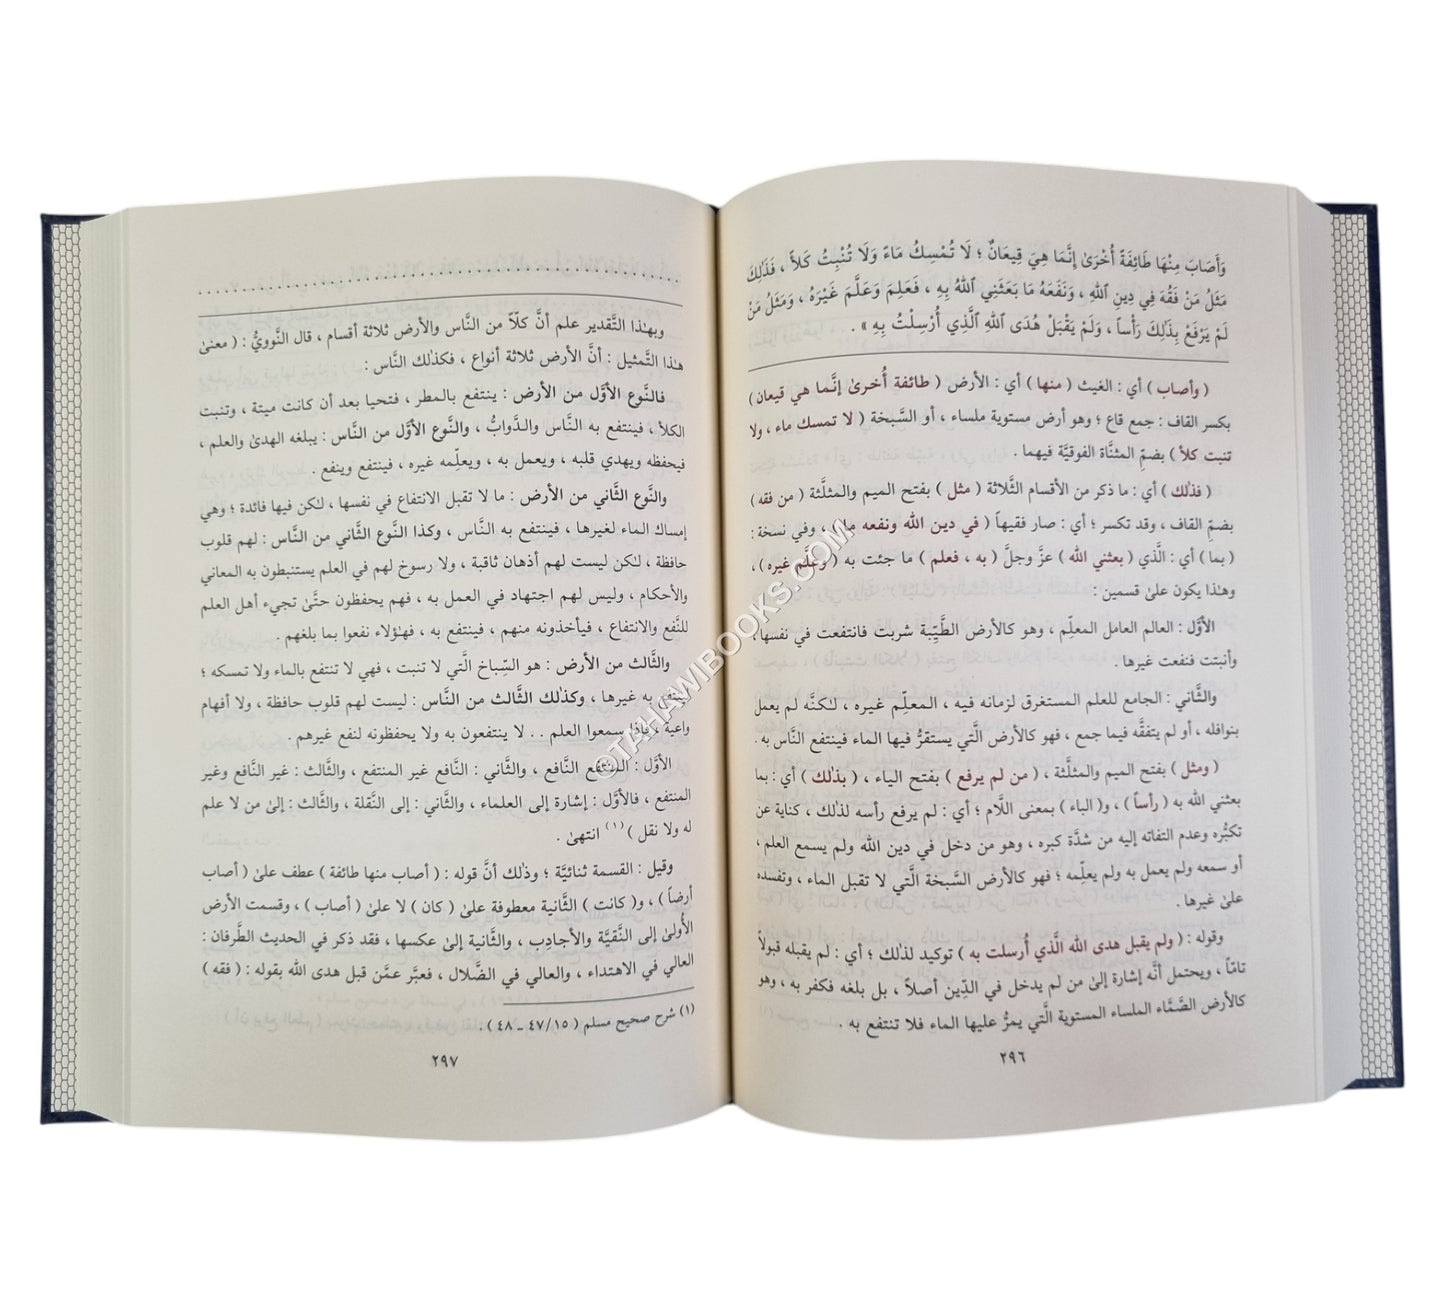 وَأَصَابَ مِنْهَا طَائِفَةً أُخْرَىٰ إِنَّمَا هِيَ قِيعَانٌ ؛ لَا تُمْسِكُ مَاءً وَلَا تُنْبِتُ كَلأً ، فَذَٰلِكَ
مَثَلُ مَنْ فَقُهَ فِي دِينِ ٱللهِ ، وَنَفَعَهُ مَا بَعَثَنِي ٱللهُ بِهِ ، فَعَلِمَ وَعَلَّمَ غَيْرَهُ ، وَمَثَلُ مَنْ
لَمْ يَرْفَعْ بِذَٰلِكَ رَأْساً ، وَلَمْ يَقْبَلْ هُدَى ٱللهِ ٱلَّذِي أُرْسِلْتُ بِهِ » .
( وأصاب ) أي : الغيث ( منها ) أي : الأرض ( طائفة أُخرىٰ إنَّما هي قيعان )
بكسر القاف : جمع قاع ؛ وهو أرض مستوية ملساء ، أو السَّبخة ( لا تمسك ماء ، ولا
تنبت كلأ ) بضمِّ المثنَّاة الفوقيَّة فيهما .
( فذٰلك ) أي : ما ذكر من الأقسام الثَّلاثة ( مثل ) بفتح الميم والمثلَّثة ( من فقه )
بضمِّ القاف ، وقد تكسر ؛ أي : صار فقيهاً ( في دين الله ونفعه ما ) ، وفي نسخة :
( بما ) أي : الَّذي ( بعثني الله ) عزَّ وجلَّ ( به ، فعلم ) ما جئت به ( وعلَّم غيره ) ،
وهٰذا يكون علىٰ قسمين :
الأوَّل : العالم العامل المعلِّم ، وهو كالأرض الطَّيِّبة شربت فانتفعت في نفسها ،
وأنبتت فنفعت غيرها .
والثَّاني : الجامع للعلم المستغرق لزمانه فيه ، المعلِّم غيره ، لٰكنَّه لم يعمل
بنوافله ، أو لم يتفقَّه فيما جمع ، فهو كالأرض الَّتي يستقرُّ فيها الماء فينتفع النَّاس به .
( ومثل ) بفتح الميم والمثلَّثة ، ( من لم يرفع ) بفتح الياء ، ( بذٰلك ) أي : بما
بعثني الله به ( رأساً ) ، و( الباء ) بمعنى اللَّام ؛ أي : لم يرفع رأسه لذٰلك ، كناية عن
تكبُّره وعدم التفاته إليه من شدَّة كبره ، وهو من دخل في دين الله ولم يسمع العلم ،
أو سمعه ولم يعمل به ولم يعلِّمه ؛ فهو كالأرض السَّبخة الَّتي لا تقبل الماء ، وتفسده
علىٰ غيرها .
وقوله : ( ولم يقبل هدى الله الَّذي أُرسلت به ) توكيد لذٰلك ؛ أي : لم يقبله قبولاً
تامّاً ، ويحتمل أنَّه إشارة إلىٰ من لم يدخل في الدِّين أصلاً ، بل بلغه فكفر به ، وهو
كالأرض الصَّمَّاء الملساء المستوية الَّتي يمرُّ عليها الماء فلا تنتفع به .
٢٩٦
وبهٰذا التَّقدير علم أنَّ كلاًّ من النَّاس والأرض ثلاثة أقسام ، قال النَّوويُّ : ( معنىٰ
هٰذا التَّمثيل : أنَّ الأرض ثلاثة أنواع ، فكذٰلك النَّاس :
فالنَّوع الأوَّل من الأرض : ينتفع بالمطر ، فتحيا بعد أن كانت ميتة ، وتنبت
الكلأ ، فينتفع به النَّاس والدَّوابُّ ، والنَّوع الأوَّل من النَّاس : يبلغه الهدىٰ والعلم ،
فيحفظه ويهدي قلبه ، ويعمل به ، ويعلِّمه غيره ، فينتفع وينفع .
والنَّوع الثَّاني من الأرض : ما لا تقبل الانتفاع في نفسها ، لٰكن فيها فائدة ؛ وهي
إمساك الماء لغيرها ، فينتفع به النَّاس ، وكذا النَّوع الثَّاني من النَّاس : لهم قلوب
حافظة ، لٰكن ليست لهم أذهان ثاقبة ، ولا رسوخ لهم في العلم يستنبطون به المعاني
والأحكام ، وليس لهم اجتهاد في العمل به ، فهم يحفظون حتَّىٰ تجيء أهل العلم
للنَّفع والانتفاع ، فيأخذونه منهم ، فينتفع به ، فهٰؤلاء نفعوا بما بلغهم .
والثَّالث من الأرض : هو السِّباخ الَّتي لا تنبت ، فهي لا تنتفع بالماء ولا تمسكه ؛
لينتفع به غيرها ، وكذٰلك الثَّالث من النَّاس : ليست لهم قلوب حافظة ، ولا أفهام
واعية ، فإذا سمعوا العلم . . لا ينتفعون به ولا يحفظونه لنفع غيرهم .
الأوَّل : المنتفع النَّافع ، والثَّاني : النَّافع غير المنتفع ، والثَّالث : غير النَّافع وغير
المنتفع ، فالأوَّل : إشارة إلى العلماء ، والثَّاني : إلى النَّقلة ، والثَّالث : إلىٰ من لا علم
له ولا نقل )(١) انتهىٰ .
وقيل : القسمة ثنائيَّة ؛ وذٰلك أنَّ قوله : ( أصاب منها طائفة ) عطف علىٰ ( أصاب
أرضاً ) ، و( كانت ) الثَّانية معطوفة علىٰ ( كان ) لا علىٰ ( أصاب ) ، وقسمت الأرض
الأُولىٰ إلى النَّقيَّة والأجادِب ، والثَّانية إلىٰ عكسها ، فقد ذكر في الحديث الطَّرفان :
العالي في الاهتداء ، والعالي في الضَّلال ، فعبَّر عمَّن قبل هدى الله بقوله : ( فقه )
(١) شرح صحيح مسلم ( ١٥/ ٤٧ ـ ٤٨ ) .
٢٩٧
©TAHAWIBOOKS.COM